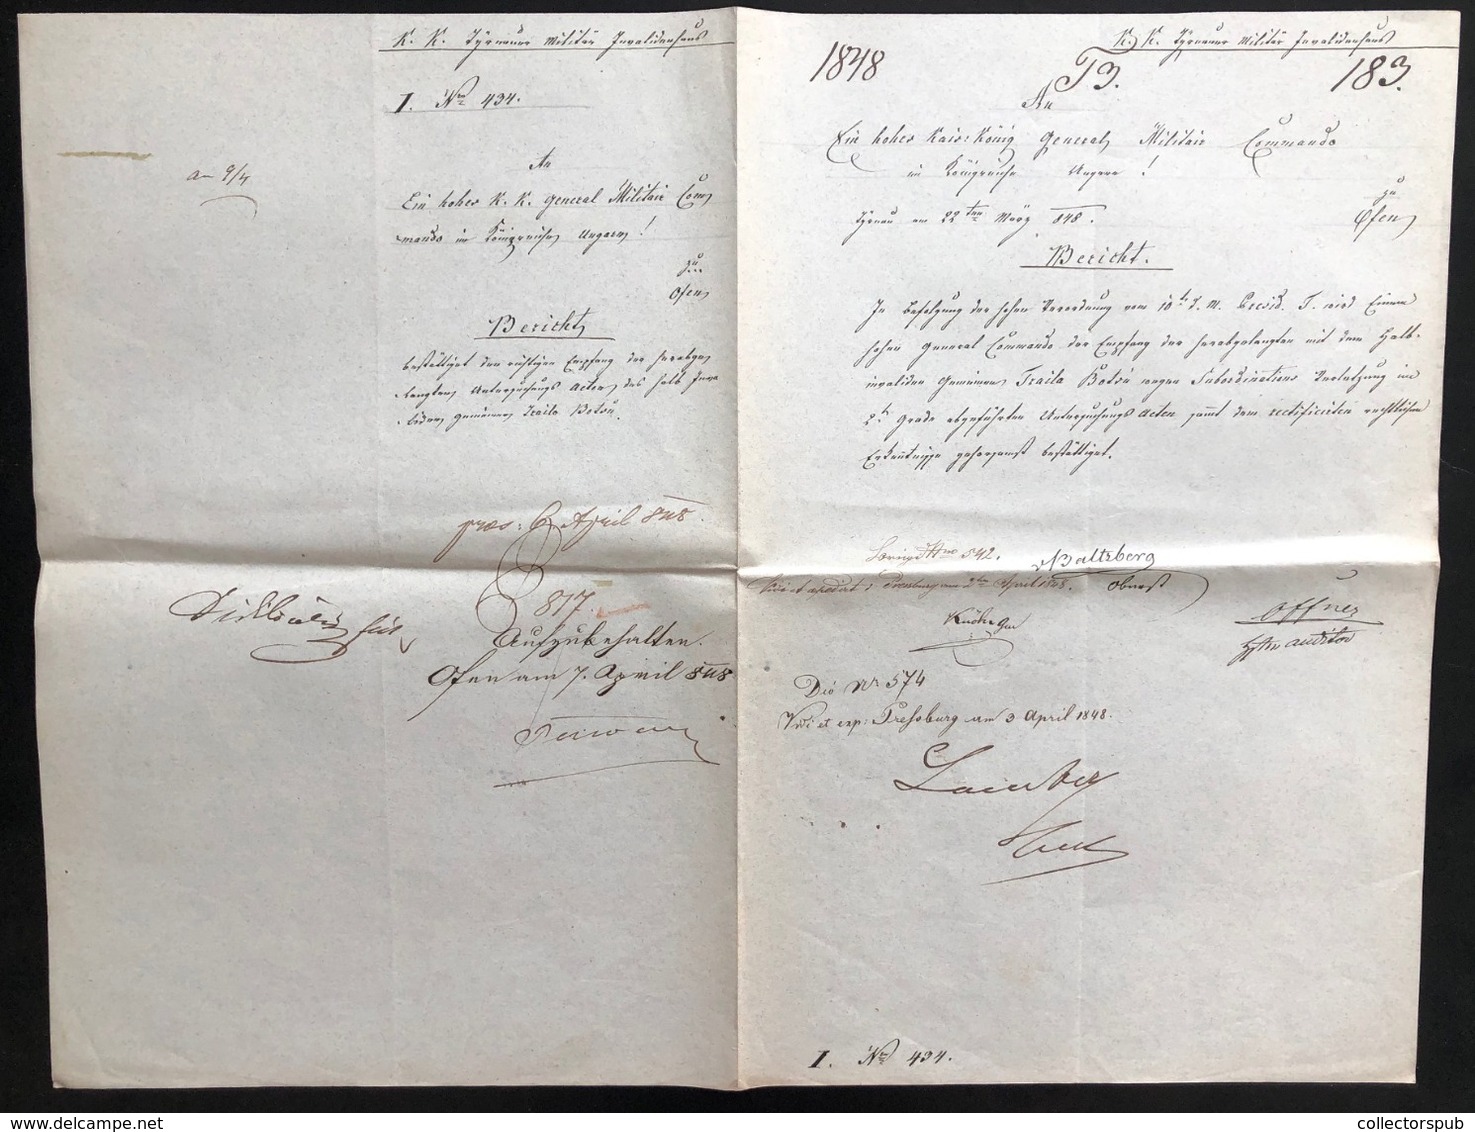 K. K. Tyrnauer Militär Invalidenhaus
I. Nro 434.
An
Ein hohes K. K. General Militair Com
mando im Königreiche Ungarn!
zu
Ofen
Bericht
bestättiget den richtigen Empfang der herabge
langten Untersuchungs Acten des halb Inva
liden Gemeinen Traila Botru.
am 9/4
præs: 6 April 848.
817.
Aufzubehalten.
Ofen am 7. April 848
K. K. Tyrnauer Militär Invalidenhaus
1848
T3.
183.
An
Ein hohes Kais: König General Militair Commando
im Königreiche Ungarn!
zu
Ofen
Tyrnau am 22ten März 848.
Bericht.
In Befolgung der hohen Verordnung vom 10t d. M. Præsid. T. wird Einem
hohen General Commando der Empfang der herabgelangten mit dem Halb-
invaliden Gemeinen Traila Botru wegen Subordinations Verletzung im
2t Grade abgeführten Untersuchungs Acten sammt dem rectificirten rechtlichen
Erkenntnisse gehorsamst bestättiget.
Nro 542.
Vidi et expedirt Pressburg am 2ten April 1848.
Baltzberg
Oberst
Offner
Auditor
Dio Nr 574
Vidi et exp: Pressburg am 3 April 1848.
I. Nro 434.
collectorspub